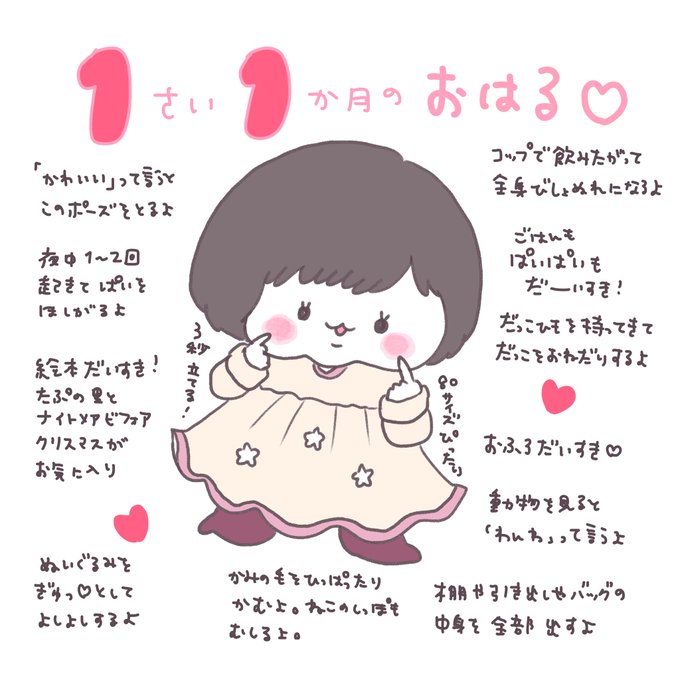 1さい1か月のおはる♡
「かわいい」って言うと
このポーズをとるよ
夜中1〜2回
起きて ぱいを
ほしがるよ
絵本だいすき!
たぷの里と
ナイトメアビフォア
クリスマスが
お気に入り
ぬいぐるみを
ぎゅっ♡として
よしよしするよ
3秒立てる!
80サイズぴったり
かみの毛をひっぱったり
かむよ。ねこのしっぽも
むしるよ。
コップで飲みたがって
全身びしょぬれになるよ
ごはんも
ぱいぱいも
だーいすき!
だっこひもを持ってきて
だっこをおねだりするよ
おふろだいすき♡
動物を見ると
「わんわ」って言うよ
棚や引き出しやバッグの
中身を全部出すよ